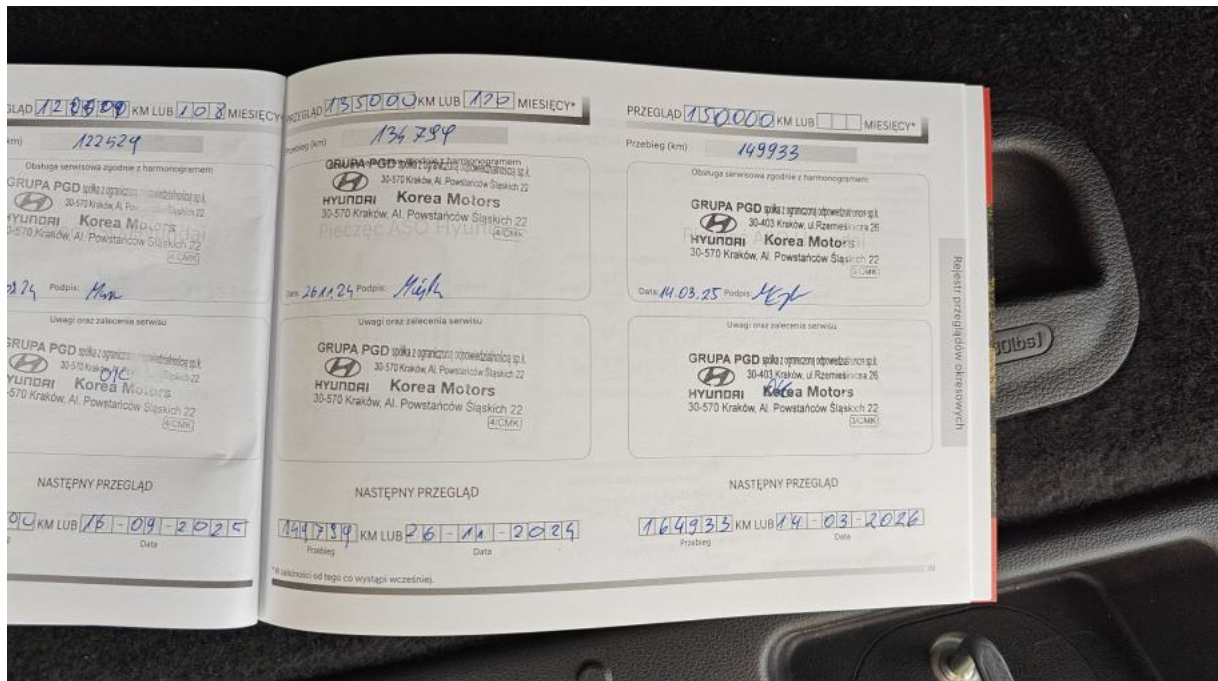 GLĄD 120000 KM LUB 108 MIESIĘCY*
km) 122529
Obsługa serwisowa zgodnie z harmonogramem
GRUPA PGD spółka z ograniczoną
30-570 Kraków, Al. Po
HYUNDAI Korea Motors
30-570 Kraków, Al. Powstańców Śląskich 22
4/CMK
24 Podpis:
Uwagi oraz zalecenia serwisu
GRUPA PGD spółka z ograniczoną odpowiedzialnością sp.k.
30-570 Kraków
YUNDAI Korea Motors
-570 Kraków, Al. Powstańców Śląskich 22
4/CMK
NASTĘPNY PRZEGLĄD
KM LUB 16-09-2025
Data
PRZEGLĄD 135000 KM LUB 120 MIESIĘCY*
Przebieg (km) 134799
GRUPA PGD spółka z ograniczoną odpowiedzialnością sp.k.
30-570 Kraków, Al. Powstańców Śląskich 22
HYUNDAI Korea Motors
30-570 Kraków, Al. Powstańców Śląskich 22
Pieczęć ASO Hyundai
4/CMK
Data: 26.11.24 Podpis:
Uwagi oraz zalecenia serwisu
GRUPA PGD spółka z ograniczoną odpowiedzialnością sp.k.
30-570 Kraków, Al. Powstańców Śląskich 22
HYUNDAI Korea Motors
30-570 Kraków, Al. Powstańców Śląskich 22
4/CMK
NASTĘPNY PRZEGLĄD
149799 KM LUB 26-11-2024
Przebieg Data
*W zależności od tego co wystąpi wcześniej.
PRZEGLĄD 150000 KM LUB MIESIĘCY*
Przebieg (km) 149933
Obsługa serwisowa zgodnie z harmonogramem
GRUPA PGD spółka z ograniczoną odpowiedzialnością sp.k.
30-403 Kraków, ul.Rzemieślnicza 26
HYUNDAI Korea Motors
30-570 Kraków, Al. Powstańców Śląskich 22
3/CMK
Data: 14.03.25 Podpis:
Uwagi oraz zalecenia serwisu
GRUPA PGD spółka z ograniczoną odpowiedzialnością sp.k.
30-403 Kraków, ul.Rzemieślnicza 26
HYUNDAI Korea Motors
30-570 Kraków, Al. Powstańców Śląskich 22
3/CMK
NASTĘPNY PRZEGLĄD
164933 KM LUB 14-03-2026
Przebieg Data
Rejestr przeglądów okresowych
0lbs]